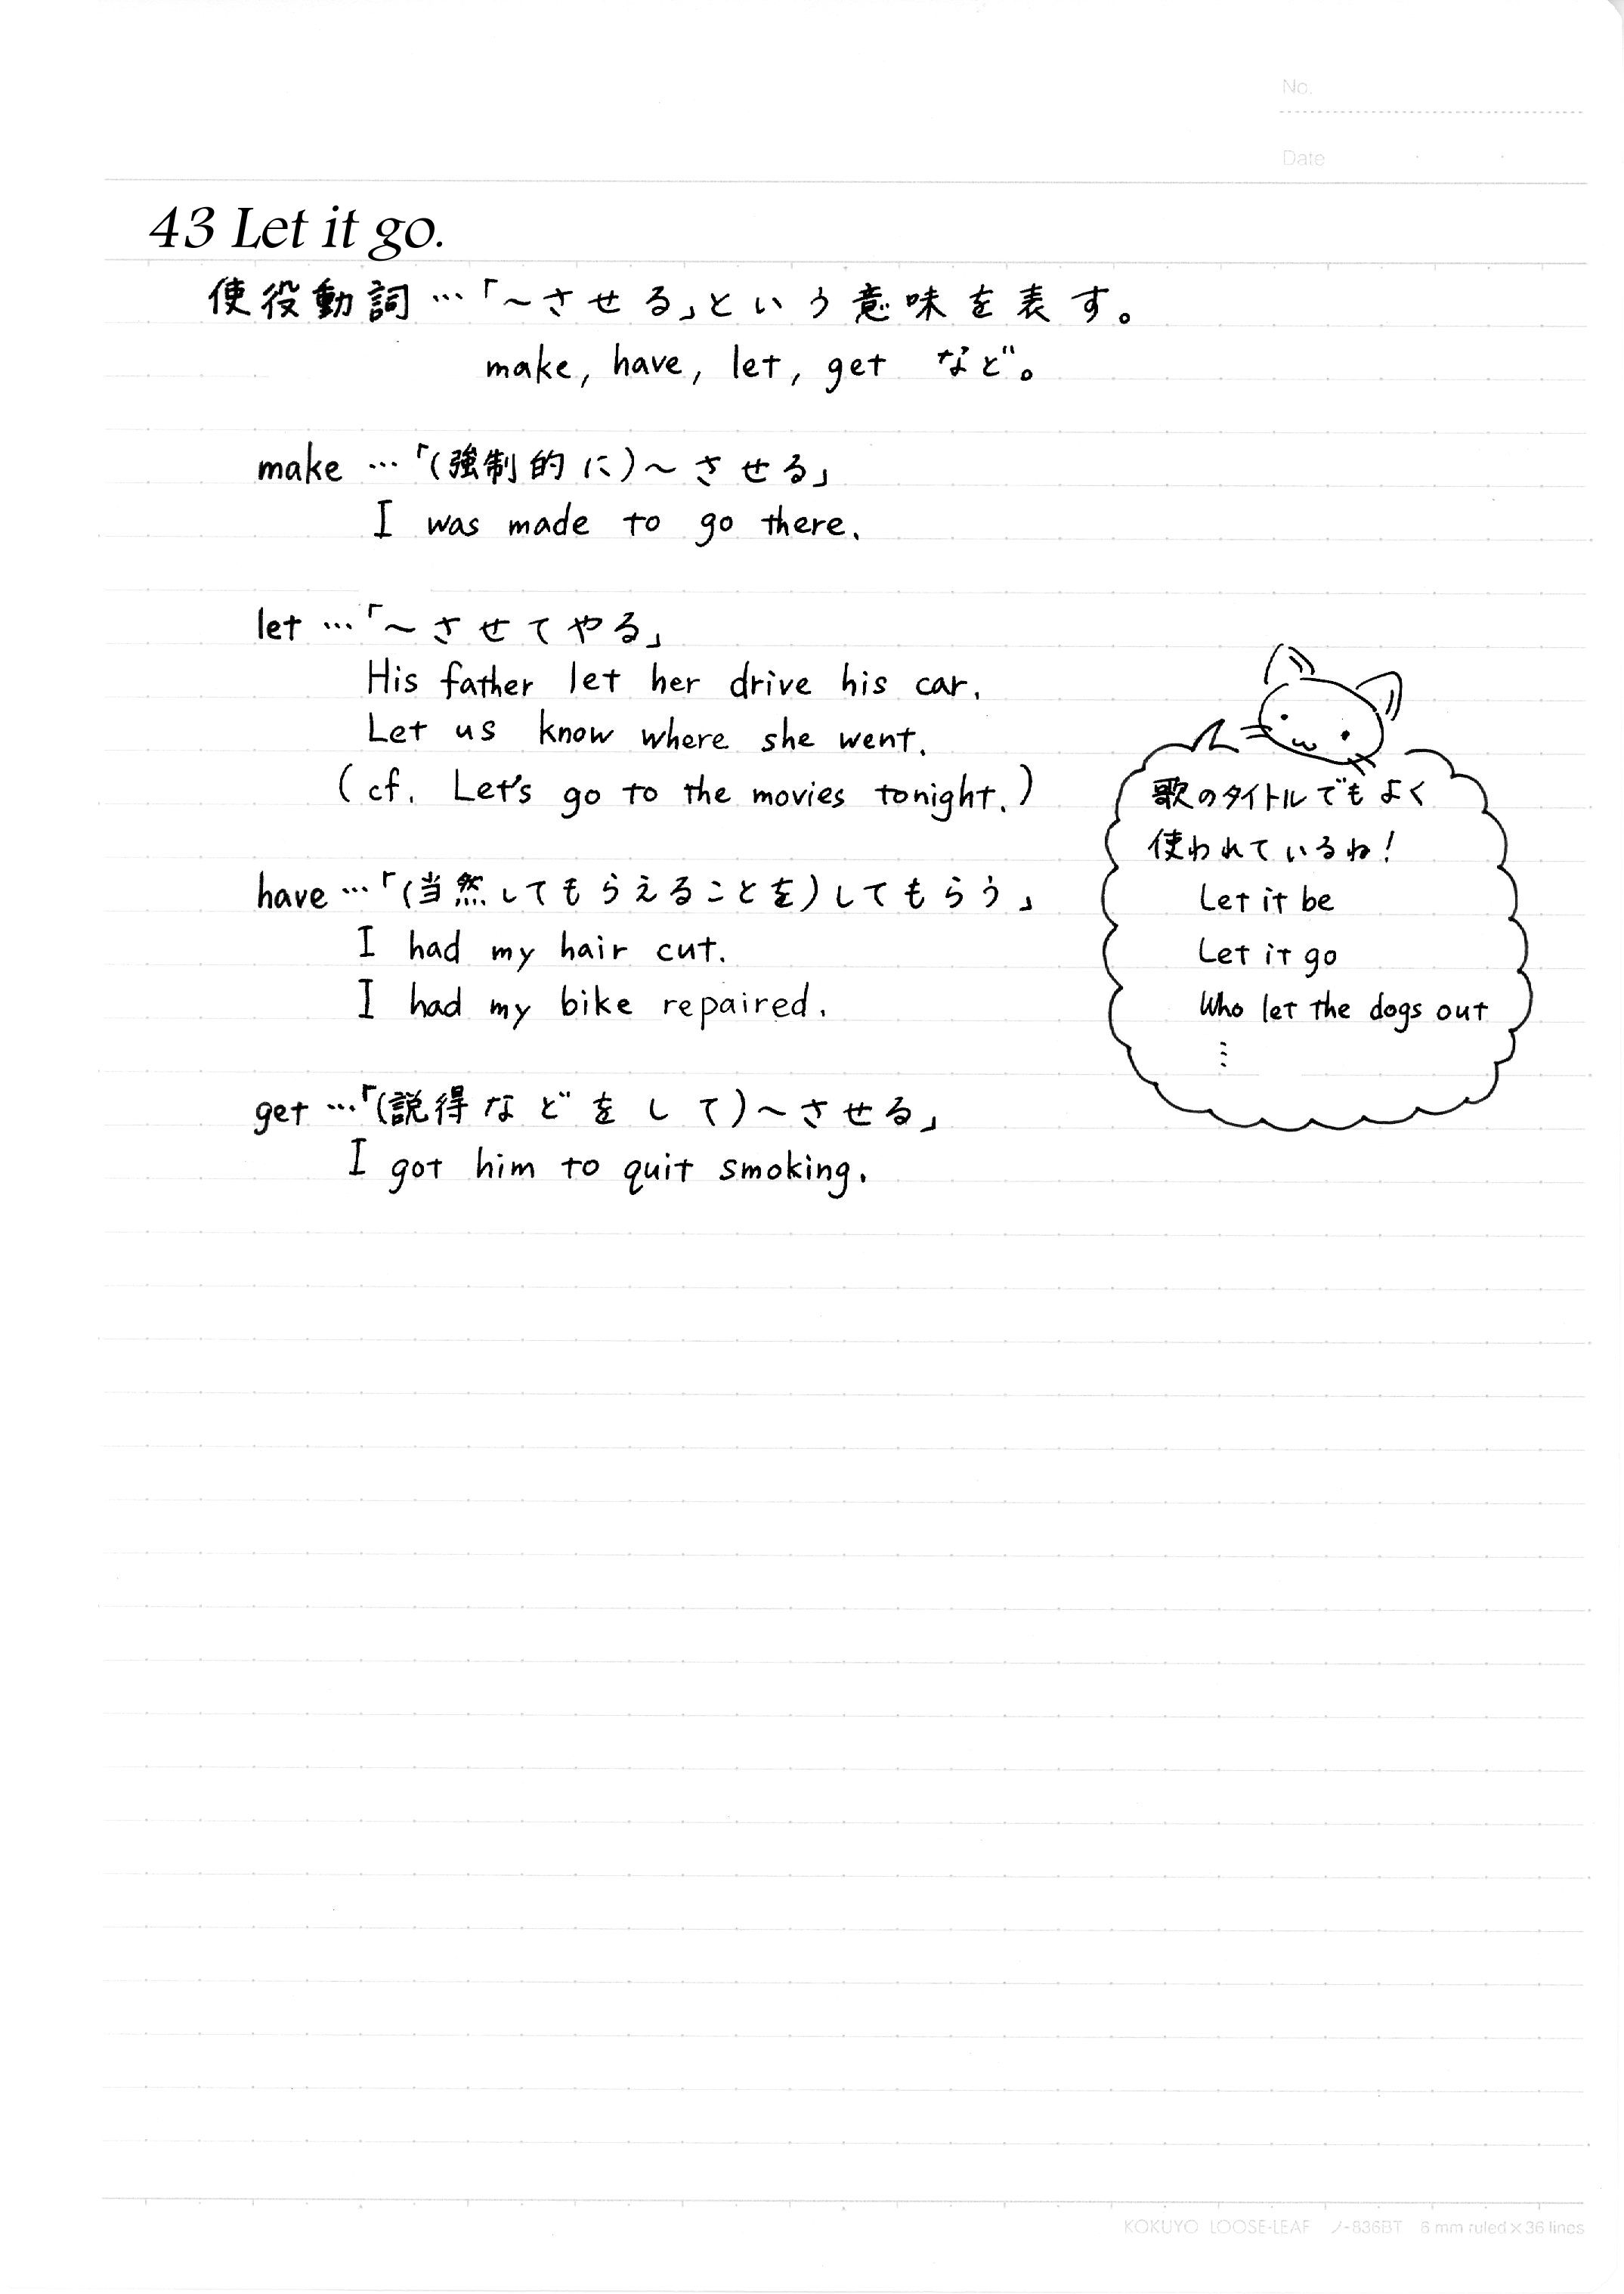 No.
Date
43 Let it go.
使役動詞…「〜させる」という意味を表す。
make, have, let, get など。
make …「(強制的に)〜させる」
I was made to go there.
let …「〜させてやる」
His father let her drive his car.
Let us know where she went.
(cf. Let's go to the movies tonight.)
have …「(当然してもらえることを)してもらう」
I had my hair cut.
I had my bike repaired.
get …「(説得などをして)〜させる」
I got him to quit smoking.
歌のタイトルでもよく
使われているね!
Let it be
Let it go
Who let the dogs out
⋮
KOKUYO LOOSE-LEAF ノ-836BT 6 mm ruled×36 lines